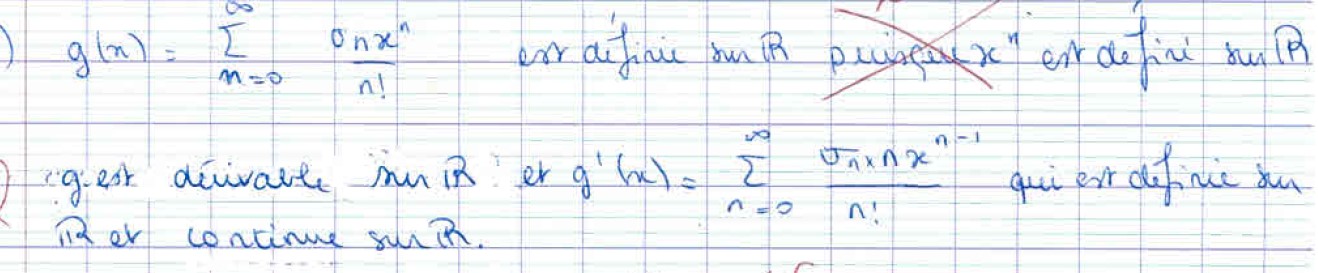 ) g(x) = ∑_{n=0}^{∞} σ_n x^n / n! est définie sur ℝ puisque x^n est defini sur ℝ
g est dérivable sur ℝ et g'(x) = ∑_{n=0}^{∞} σ_n × n x^{n-1} / n! qui est définie sur
ℝ et continue sur ℝ.